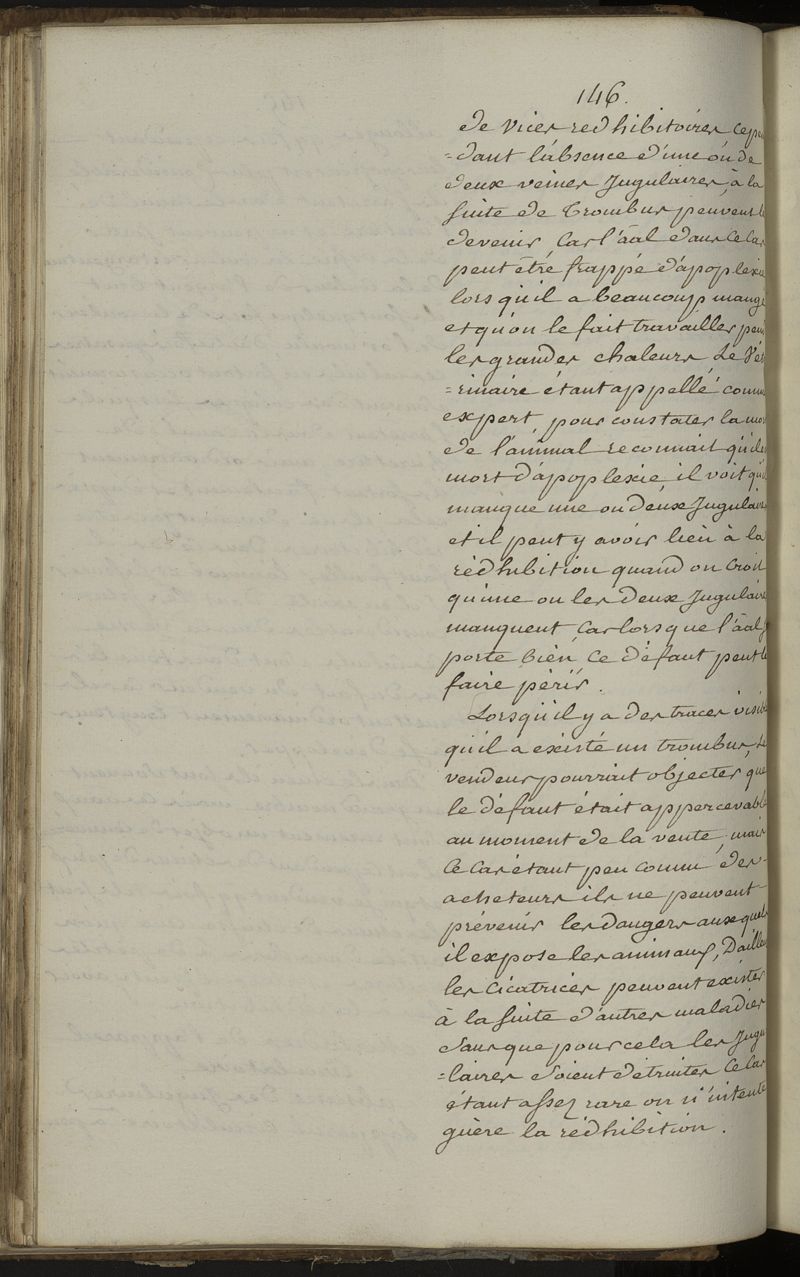 146.
de vices redhibitoires cepen
=dant l'absence d'une ou de
deux veines Jugulaires, à la
suite de trombus peuvent le
devenir, car l'aâl dans ce cas
peut être frappé d'apoplexie
lors qu'il a beaucoup mangé
et qu'on le fait travailler pen
les grandes chaleurs, Le Vété
=rinaire étant appellé comme
expert, pour constater la mort
de l'animal reconnait qu'il es
mort d'apoplexie, il voit qu'i
manque une ou deux Jugulaire
et il peut y avoir lieu à la
rédhibition quand on croit
qu'une ou les deux Jugulaire
manquent, car lorsque l'aâl
porte bien, ce défaut peut le
faire périr.
Lorsqu'il y a des traces visib
qu'il a existé un trombus, Le
vendeur pourrait objecter, que
le défaut était appercevable
au moment de la vente, mais
ce cas étant peu connu des
acheteurs ils ne peuvent
prévenir les dangers auxquels
il expose les animaux, D'aille
les cicatrices peuvent exister
à la suite d'autres maladies
sans que pour cela les Jugu
=laires soient détruites ce cas
étant assez rare on n'intente
guère la rédhibition.